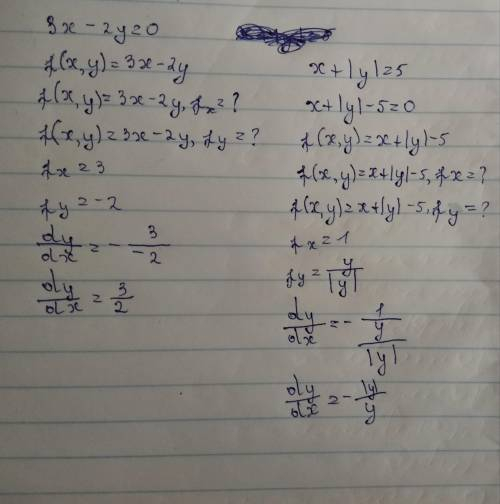 3x - 2y = 0
f(x,y) = 3x - 2y
f(x,y) = 3x - 2y, fx = ?
f(x,y) = 3x - 2y, fy = ?
fx = 3
fy = -2
dy/dx = - 3/-2
dy/dx = 3/2
x + |y| = 5
x + |y| - 5 = 0
f(x,y) = x + |y| - 5
f(x,y) = x + |y| - 5, fx = ?
f(x,y) = x + |y| - 5, fy = ?
fx = 1
fy = y/|y|
dy/dx = - 1/(y/|y|)
dy/dx = - |y|/y